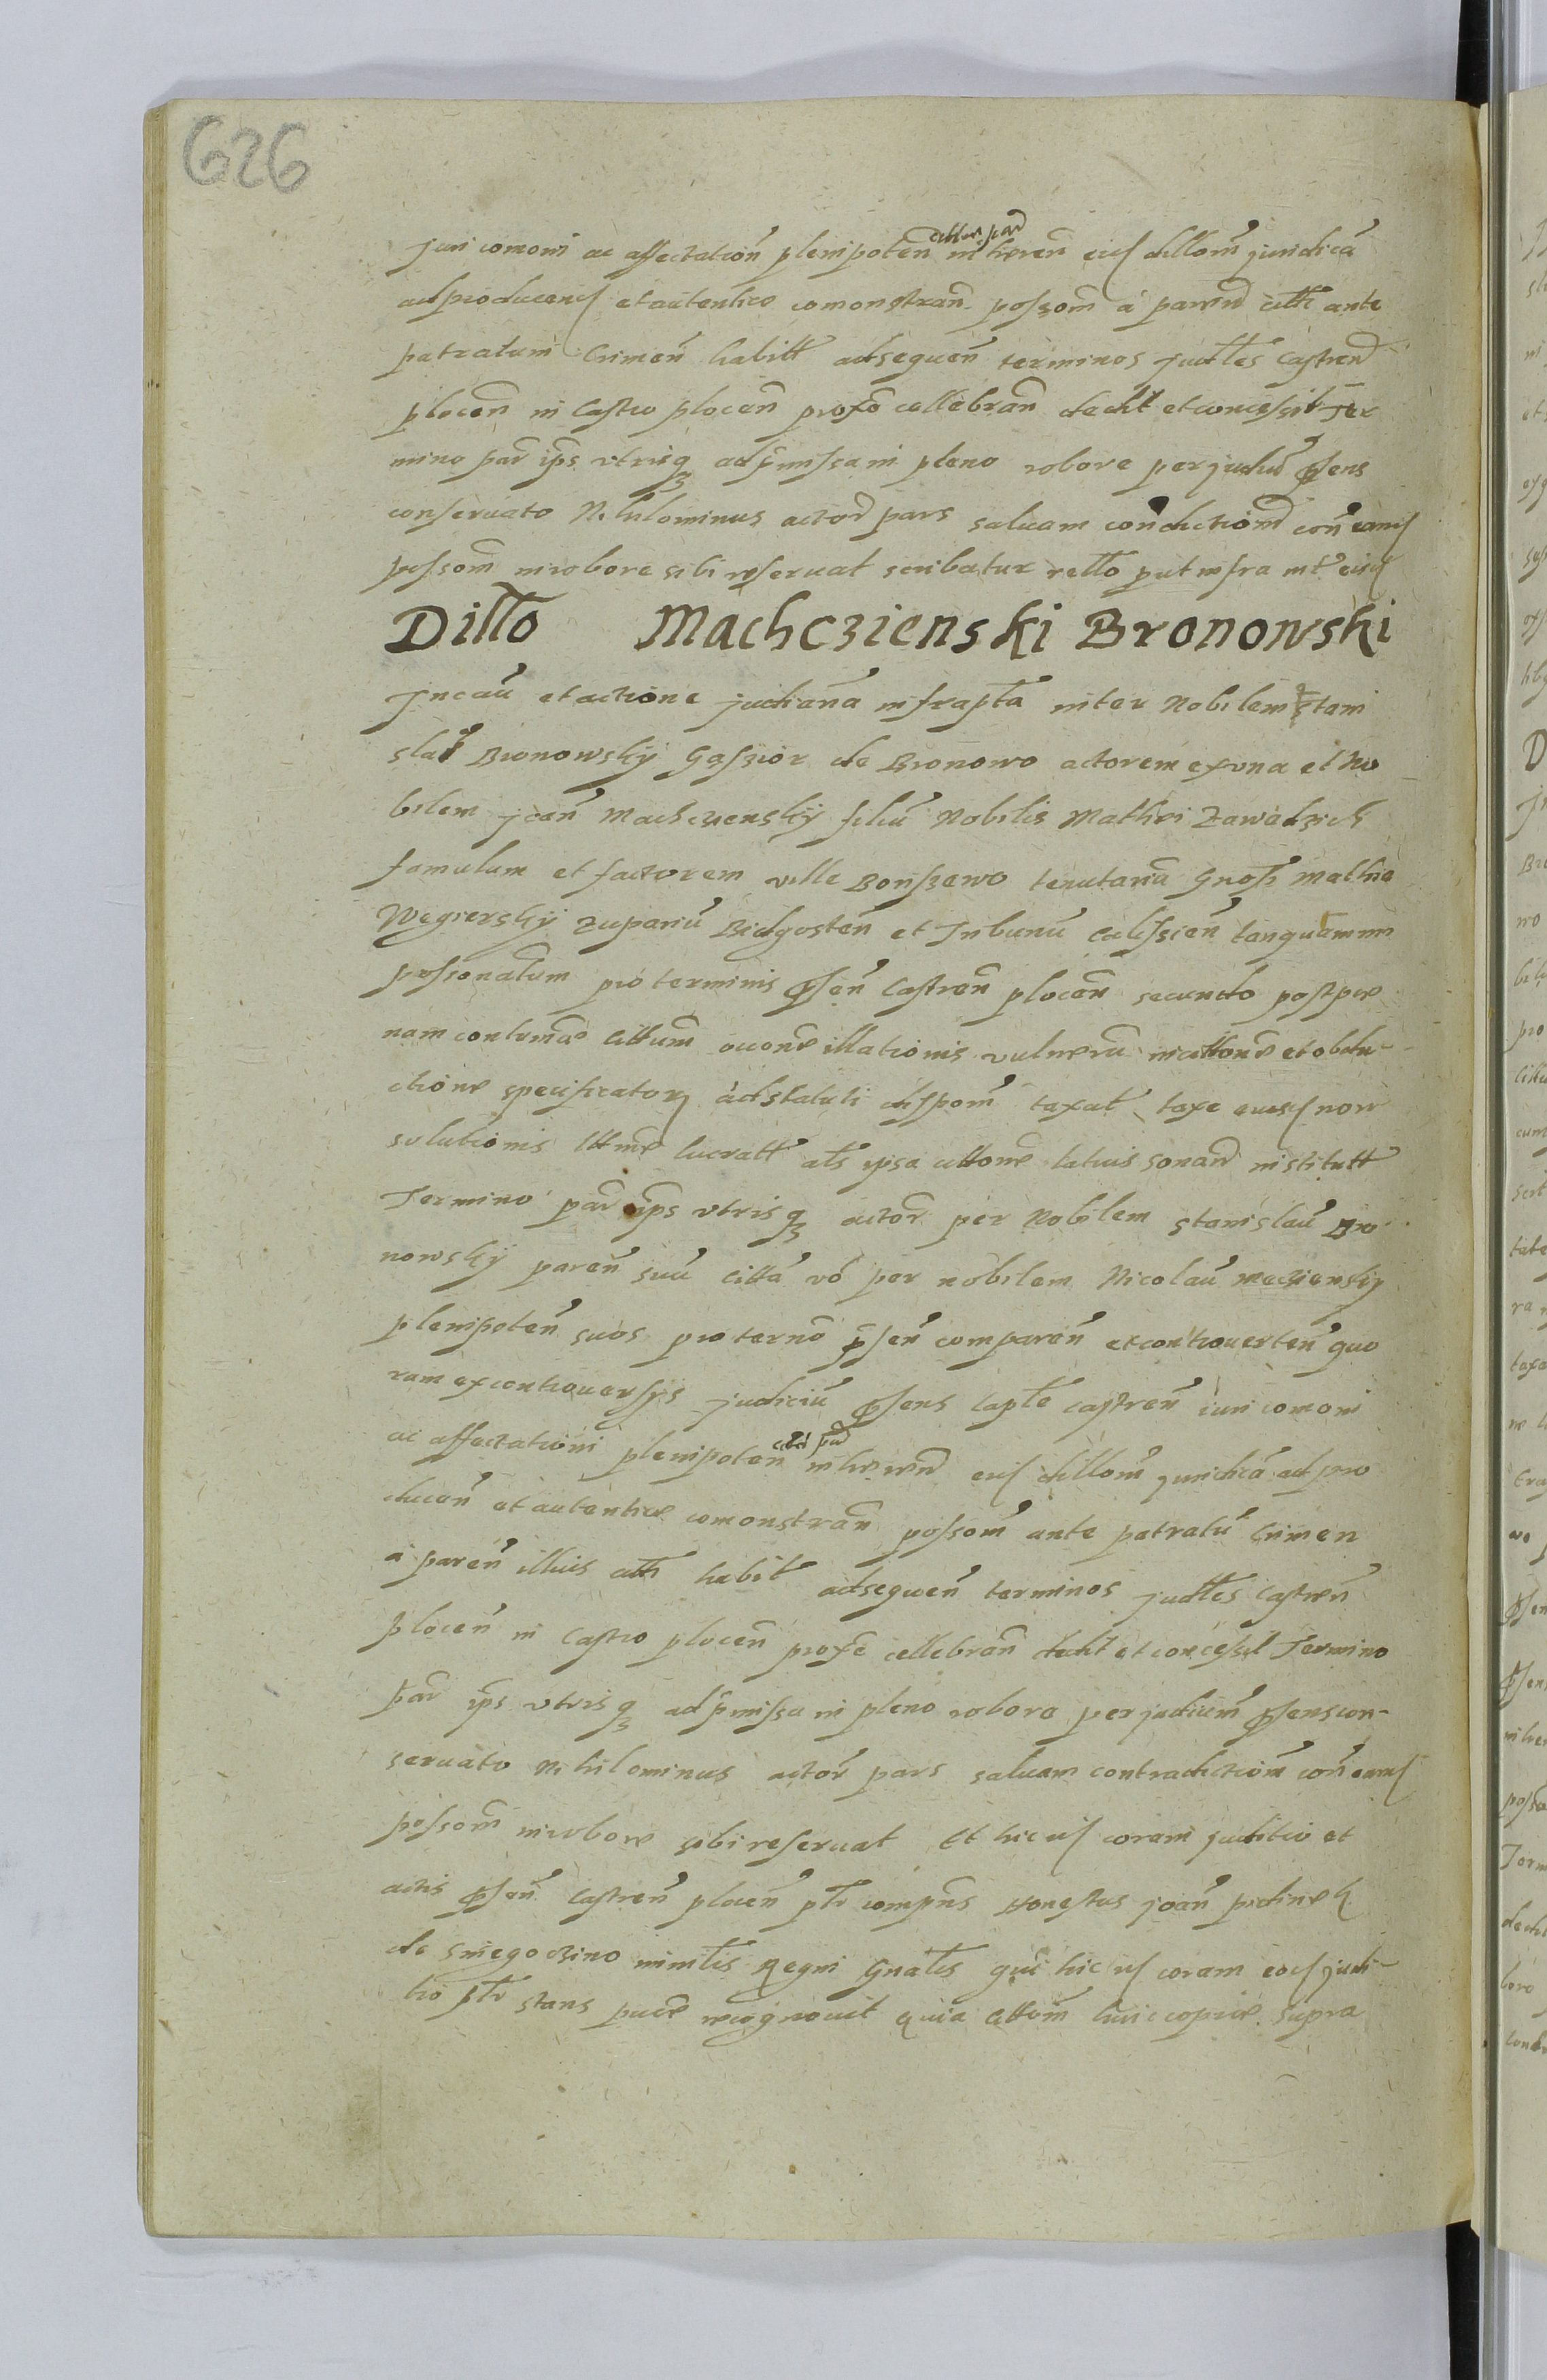 626
Juri comoni ac affectation plenipoten citter par inheren eius dillom juridica
adproducenđ et autentice comonstran possom á paren citti ante
patratum Crimen habitt adsequen terminos judtles Castren
plocen in Castro plocen profo cellebran dedit et concessit Ter
mino par ips vtrisq adpmissa in pleno robore per judiu Psens
conseruato Nihilominus actor pars saluam condictiom con eand
possom in robore sibi reseruat scribatur rello put infra int eisd
Ditto Machczienski Bronowski
In cau et actione judiana infrapta inter Nobilem Stani
slau Bronowskij Gąszior de Bronowo actorem ex una et No
bilem joan Machczenskij filiu Nobilis Mathei Zawadzich
famulum et factorem ville Bonszewo tenutaria Gnosi Mathie
Węgierskij zupariu Bidgosten et Tribunu Calissien tanquam im
possonatum pro terminis Psen Castren plocen secundo post pœ
nam contumae Cittum occone illationis vulneru in cittone et obdu
ctione specificatorz ad statuti dispom taxat taxe eiusd non
solutionis ittme lucratt als ipsa cittone latius sonan institutt
Termino par ips vtrisq actor per Nobilem stanislau Bro
nowskij paren suu Citta vo per nobilem Nicolau meczienskij
plenipoten suos pro terno psen comparen et controuerten quo
rum ex controuersijs judiciu Psens Capte castren iuri comoni
ac affectationi plenipoten citti par inheren eius dillom juridica ad pro
ducen et autentice comonstran possom ante patratu Crimen
a paren illius citti habit adsequen terminos judtles Castren
Plocen in Castro plocen profe cellebran dedit et concessit Termino
Par ips vtrisq ad pmissa in pleno robore per judium Psens con-
seruato Nihilominus actor pars saluam contradictiom con eand
possom in robore sibi reseruat Et hic id coram juditio et
actis Psen Castren plocen ptr compns Honestus joan
de Sniegoczino ministlis Regni Gnatlis qui hic id coram eod judi-
tio ptr stans pure recognouit quia Cittom huic copie supra